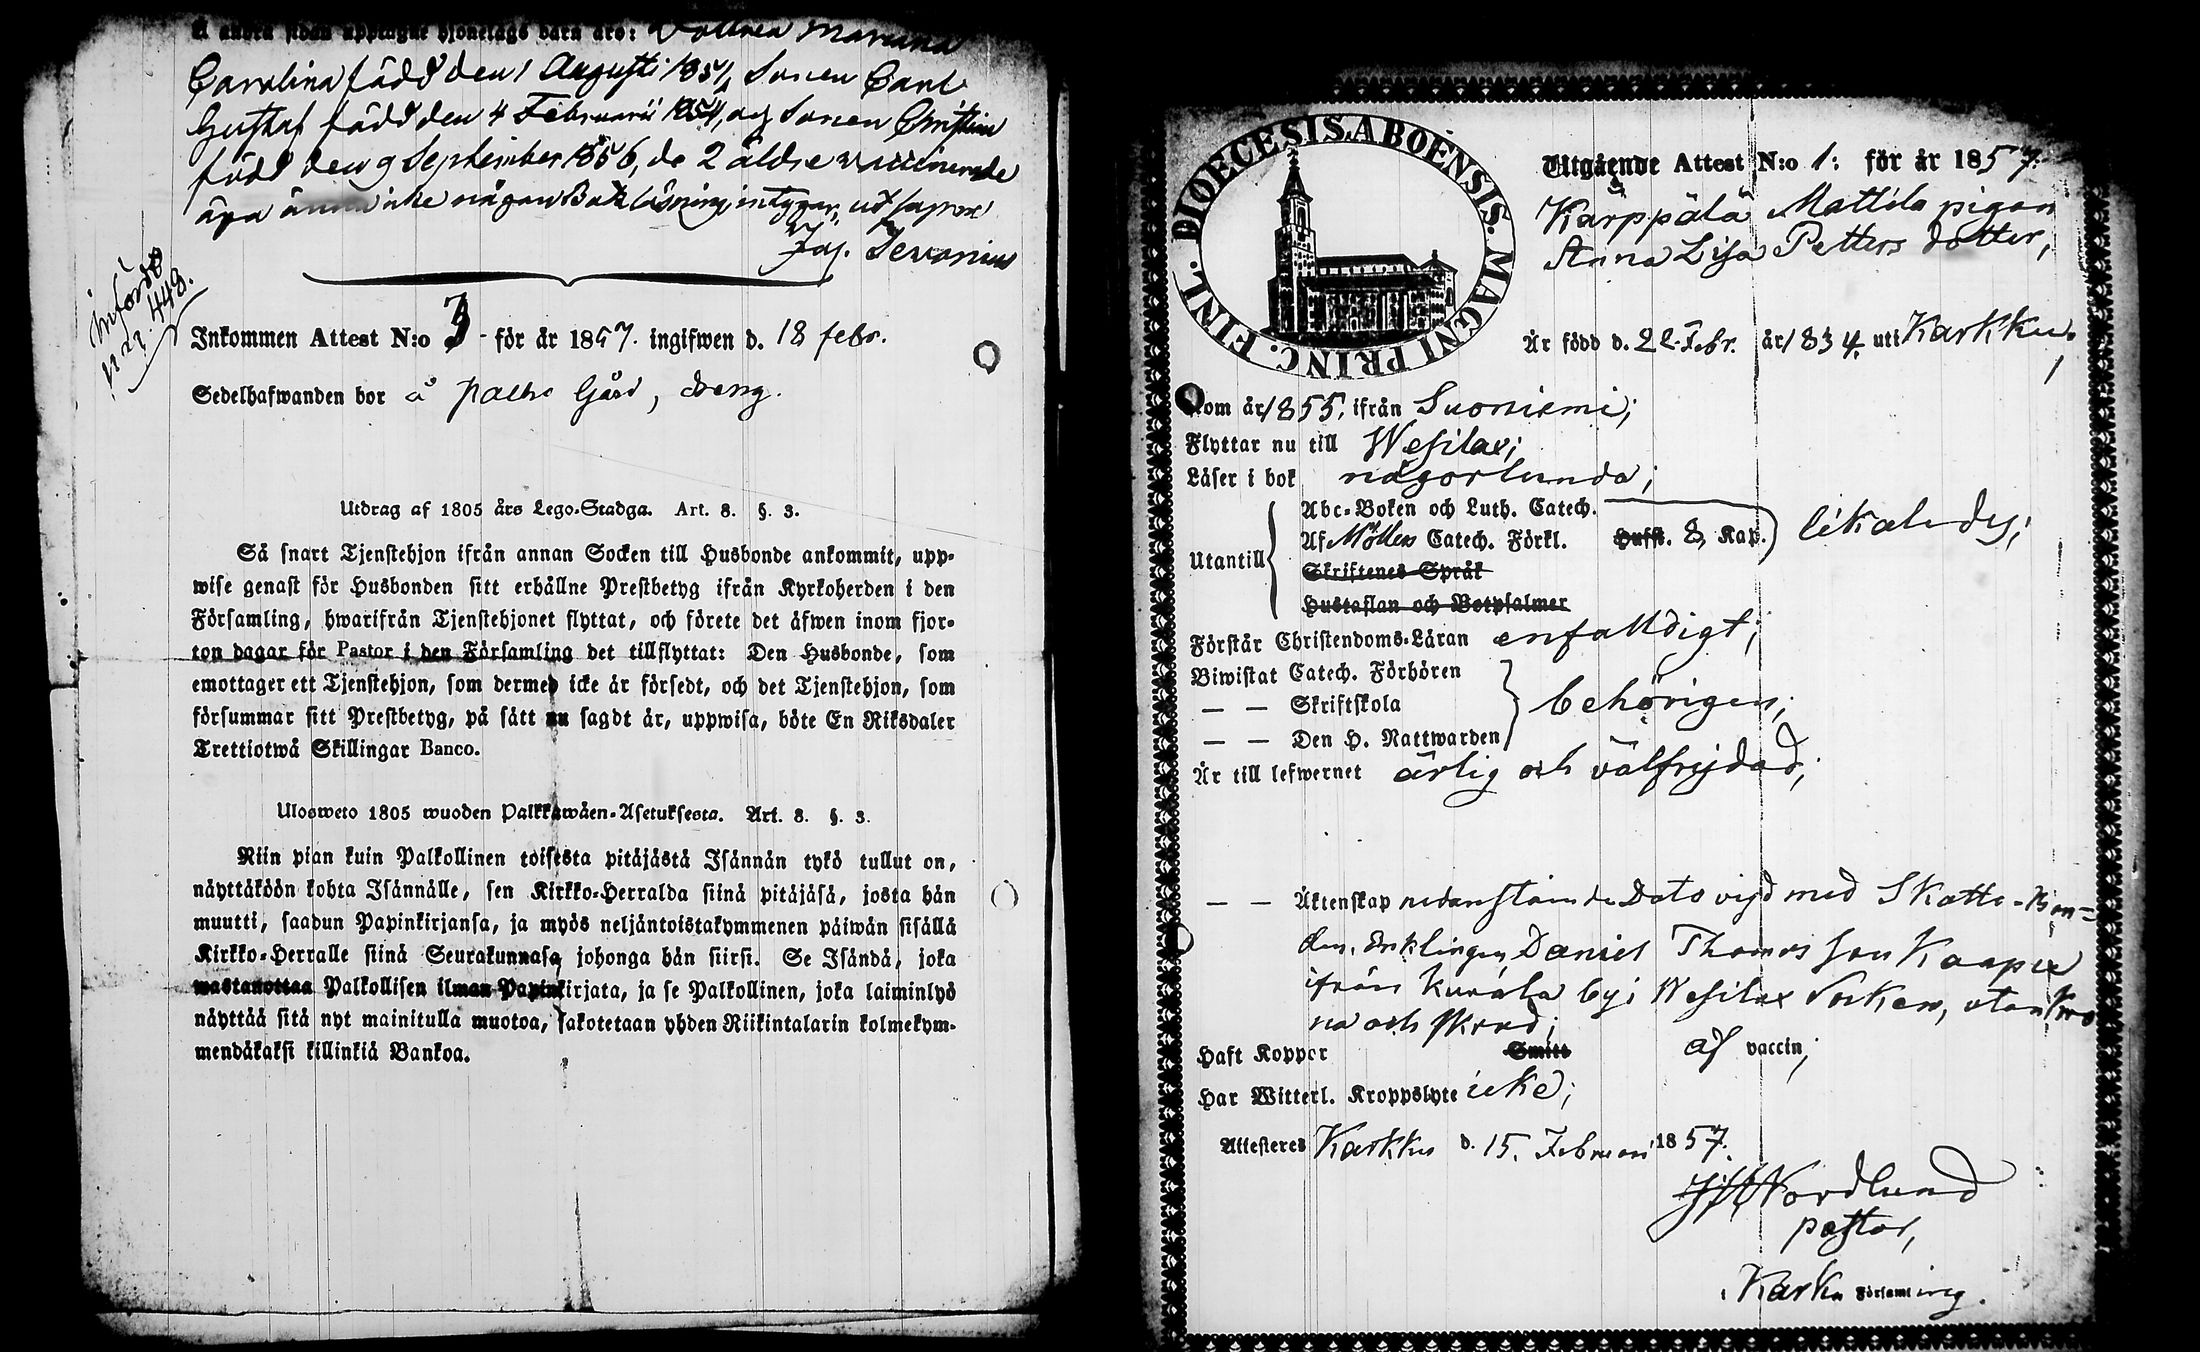 å andra sidan upptagne hjonelags barn äro: Dottren Mariana
Carolina född den 1 Augusti 1851, Sonen Carl
Gustaf född den 4 Februarii 1854, och Sonen Christian
född den 9 September 1856, de 2 äldre vaccinerade
äga ännu icke någon Bokläsning, intygar, ut supra
Jag.
införd
448.
Inkommen Attest N:o 3 för år 1857. ingifwen d. 18 febr.
Sedelhafwanden bor å Palho Gård, dreng.
Utdrag af 1805 års Lego-Stadga. Art. 8. §. 3.
Så snart Tjenstehjon ifrån annan Socken till Husbonde ankommit, upp-
wise genast för Husbonden sitt erhållne Prestbetyg ifrån Kyrkoherden i den
Församling, hwarifrån Tjenstehjonet flyttat, och förete det äfwen inom fjor-
ton dagar för Pastor i den Församling det tillflyttat: Den Husbonde, som
emottager ett Tjenstehjon, som dermed icke är försedt, och det Tjenstehjon, som
försummar sitt Prestbetyg, på sätt nu sagdt är, uppwisa, böte En Riksdaler
Trettiotwå Skillingar Banco.
Ulosweto 1805 wuoden Palkkawäen-Asetuksesta. Art. 8. §. 3.
Niin pian kuin Palkollinen toisesta pitäjästä Isännän tykö tullut on,
näyttäköön kohta Isännälle, sen Kirkko-Herralda siinä pitäjäsä, josta hän
muutti, saadun Papinkirjansa, ja myös neljäntoistakymmenen päiwän sisällä
Kirkko-Herralle siinä Seurakunnasa johonga hän siirsi. Se Isändä, joka
wastanottaa Palkollisen ilman Papinkirjata, ja se Palkollinen, joka laiminlyö
näyttää sitä nyt mainitulla muotoa, sakotetaan yhden Riikintalarin kolmekym-
mendäkaksi killinkiä Bankoa.
DIOECESIS ABOENSIS. MAGNI PRINC. FINL.
Utgående Attest N:o 1: för år 1857.
Karppälä Mattila pigan
Anna Lisa Petters dotter,
Är född d. 22 Febr. år 1834. uti Karkku,
Kom år 1855, ifrån Suoniemi;
Flyttar nu till Wesilax;
Läser i bok någorlunda;
Utantill
Abc-Boken och Luth. Catech.
Af Möllers Catech. Förkl. Hufst. 8, Kap.
likaledes;
Skriftenes Språk
Hustaflan och Botpsalmer
Förstår Christendoms-Läran enfalldigt;
Biwistat Catech. Förhören
— — Skriftskola
behörigen;
— — Den H. Nattwarden
Är till lefwernet ärlig och välfrejdad;
— — Äktenskap nedanstående Dato vigd med Skatte-Bon-
den, Enklingen Daniel Thomas son Kaapu
ifrån Kurala by i Wesilax Socken, utan Kro
na och Skrud;
Haft Koppor Smitt af vaccin;
Har Witterl. Kroppslyte icke;
Attesteres Karkku d. 15. Februari 1857.
Nordlund
pastor,
i Karku Församling.